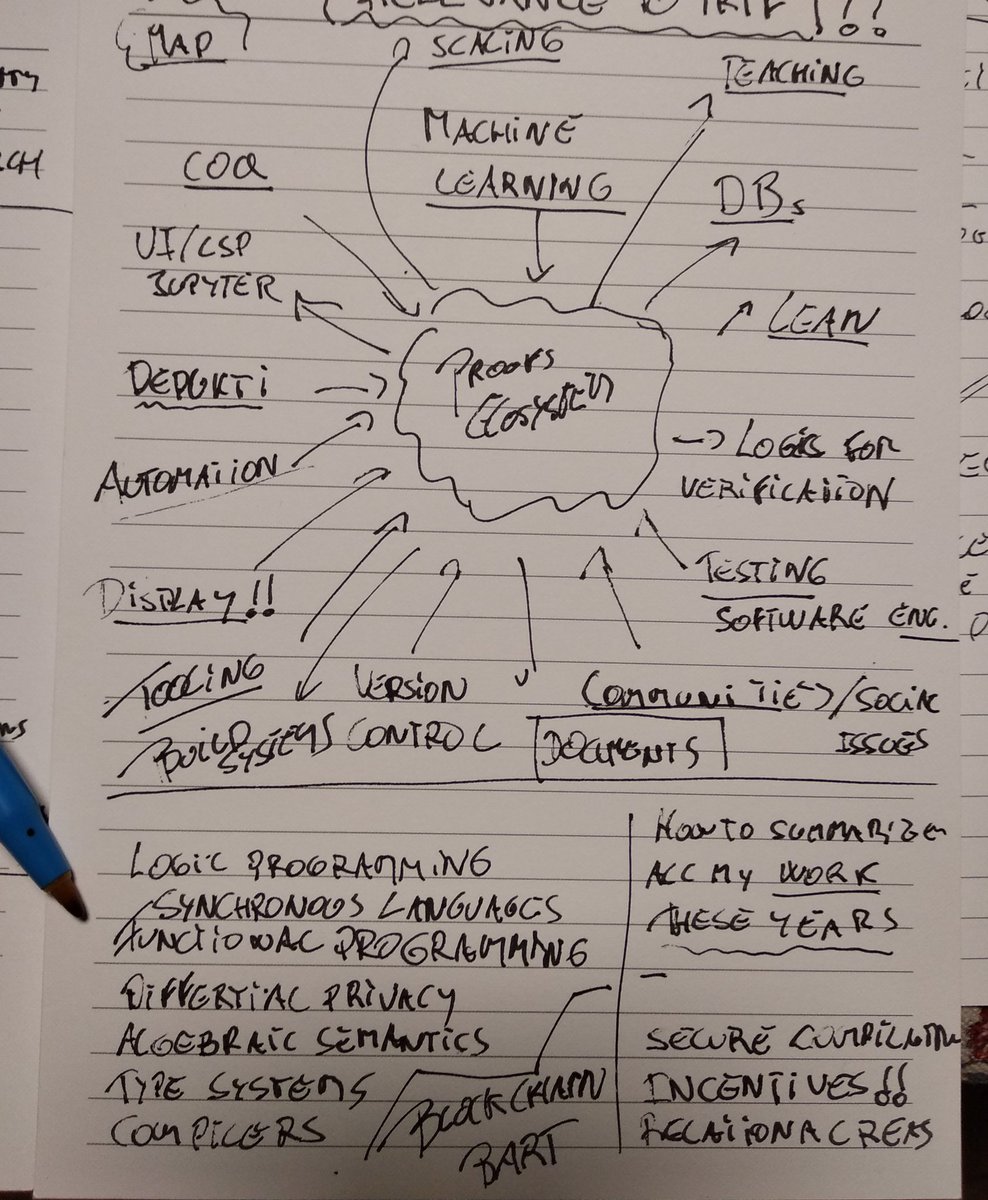 RELEVANCE TO TRIP !!
MAP
SCALING
TEACHING
MACHINE
LEARNING
COQ
DBs
UI/LSP
JUPYTER
LEAN
DEDUKTI
PROOFS
ECOSYSTEM
AUTOMATION
LOGICS FOR
VERIFICATION
DISPLAY!!
TESTING
SOFTWARE ENG.
TOOLING
VERSION
COMMUNITIES/SOCIAL
BUILD
SYSTEMS
CONTROL
DOCUMENTS
ISSUES
LOGIC PROGRAMMING
SYNCHRONOUS LANGUAGES
FUNCTIONAL PROGRAMMING
DIFFERTIAL PRIVACY
ALGEBRAIC SEMANTICS
TYPE SYSTEMS
COMPILERS
BLOCKCHAIN
BART
HOW TO SUMMARIZE
ALL MY WORK
THESE YEARS
-
SECURE COMPILATION
INCENTIVES!!
RELATIONAL REAS